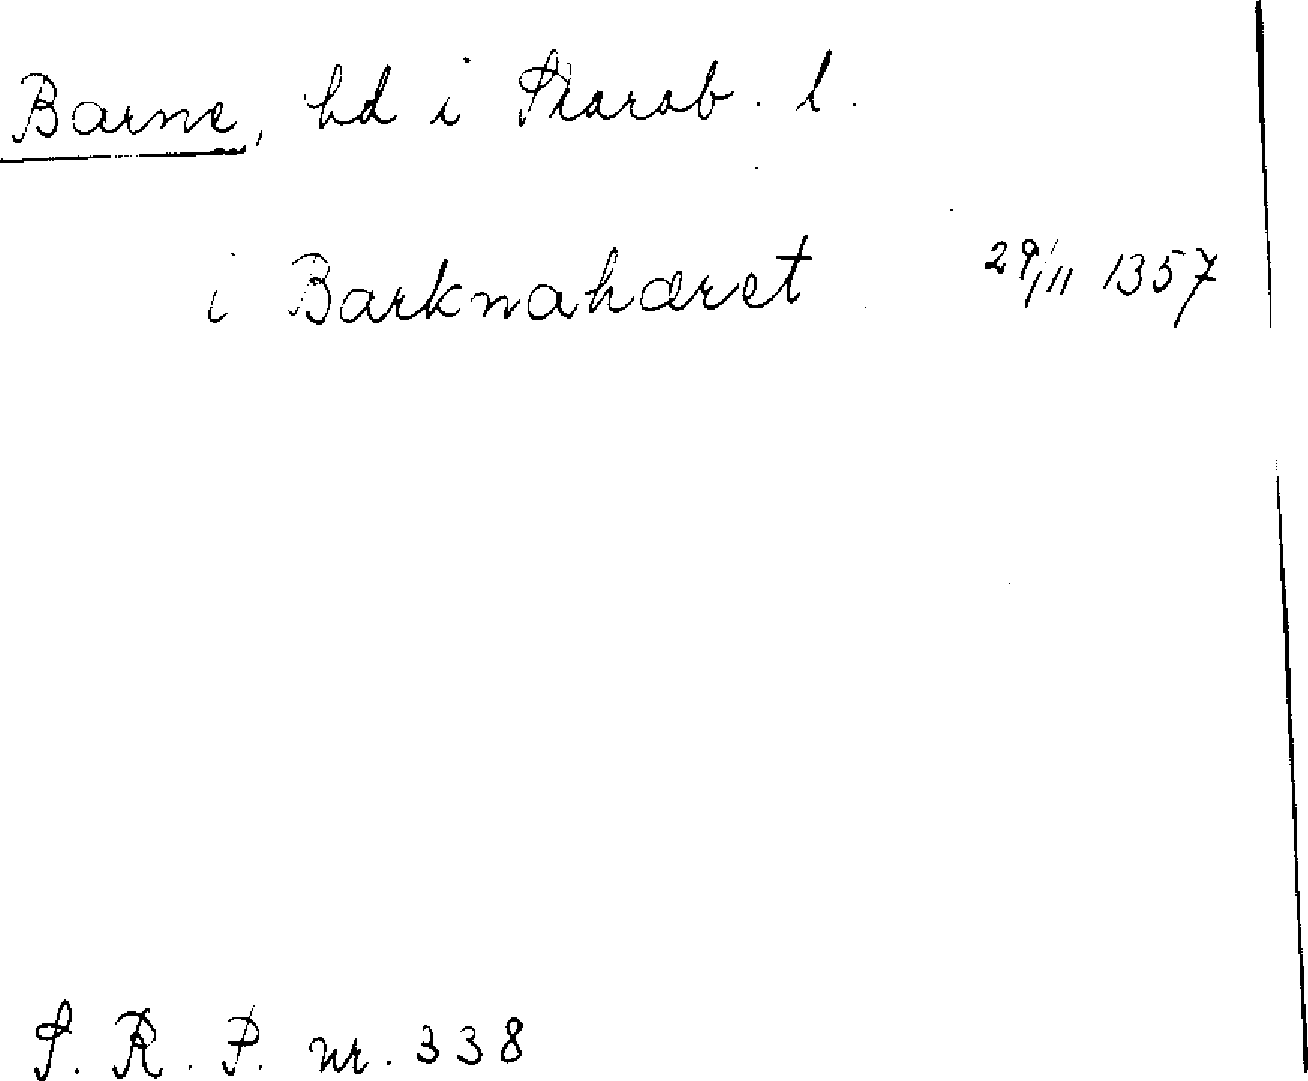 Barne, hd i Skarab. l.
i Barknahæret 29/11 1357
S. R. P. nr. 338